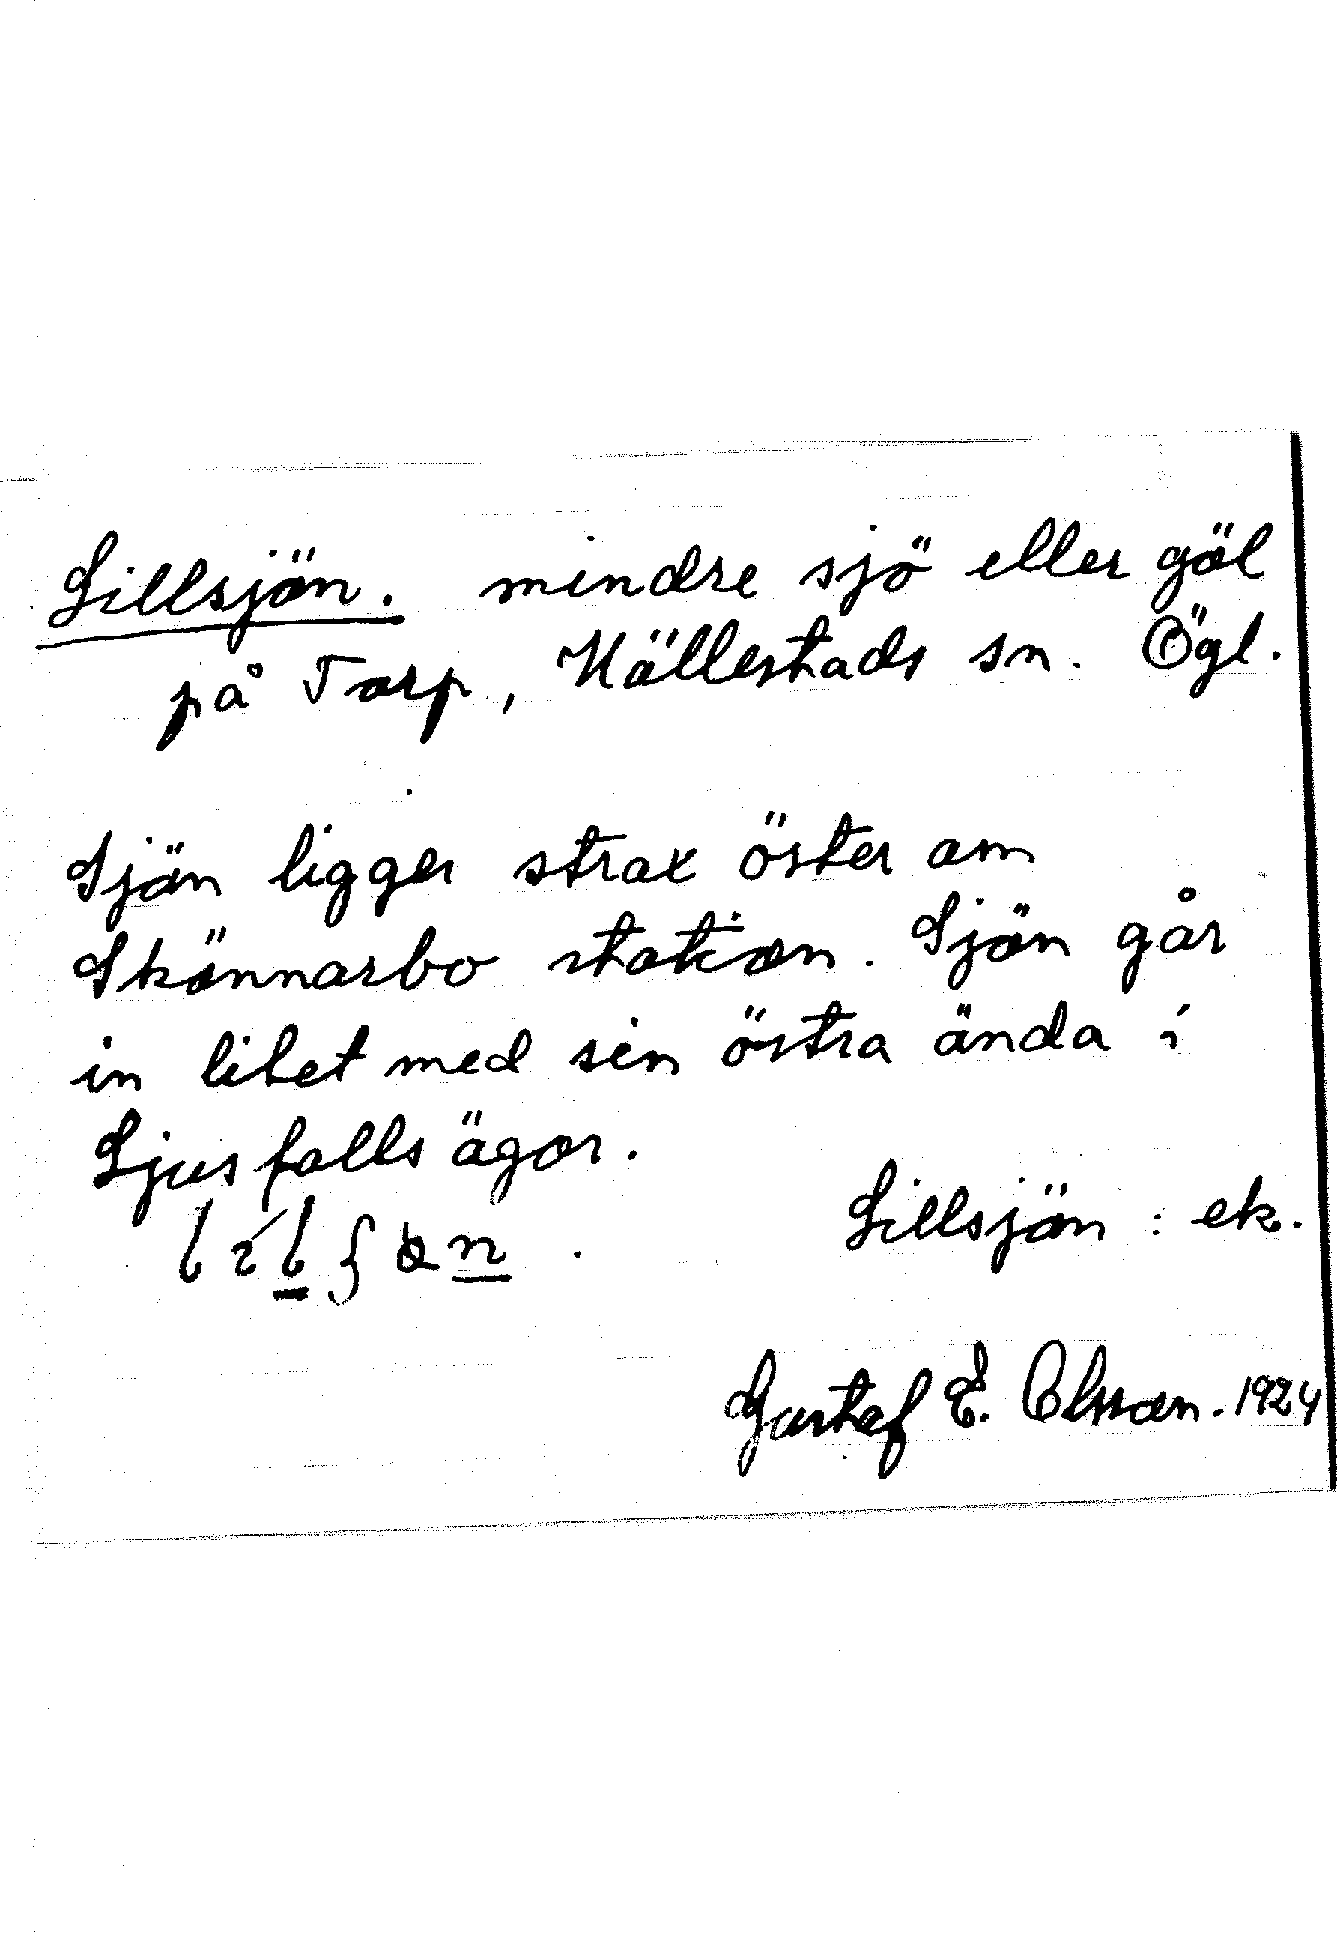 Lillsjön. mindre sjö eller göl
på Torp, Hällestads sn. Ögl.
Sjön ligger strax öster om
Skönnarbo station. Sjön går
in litet med sin östra ända i
Ljusfallsägor.
Lillsjön : ek.
Gustaf E. Olsson. 1924